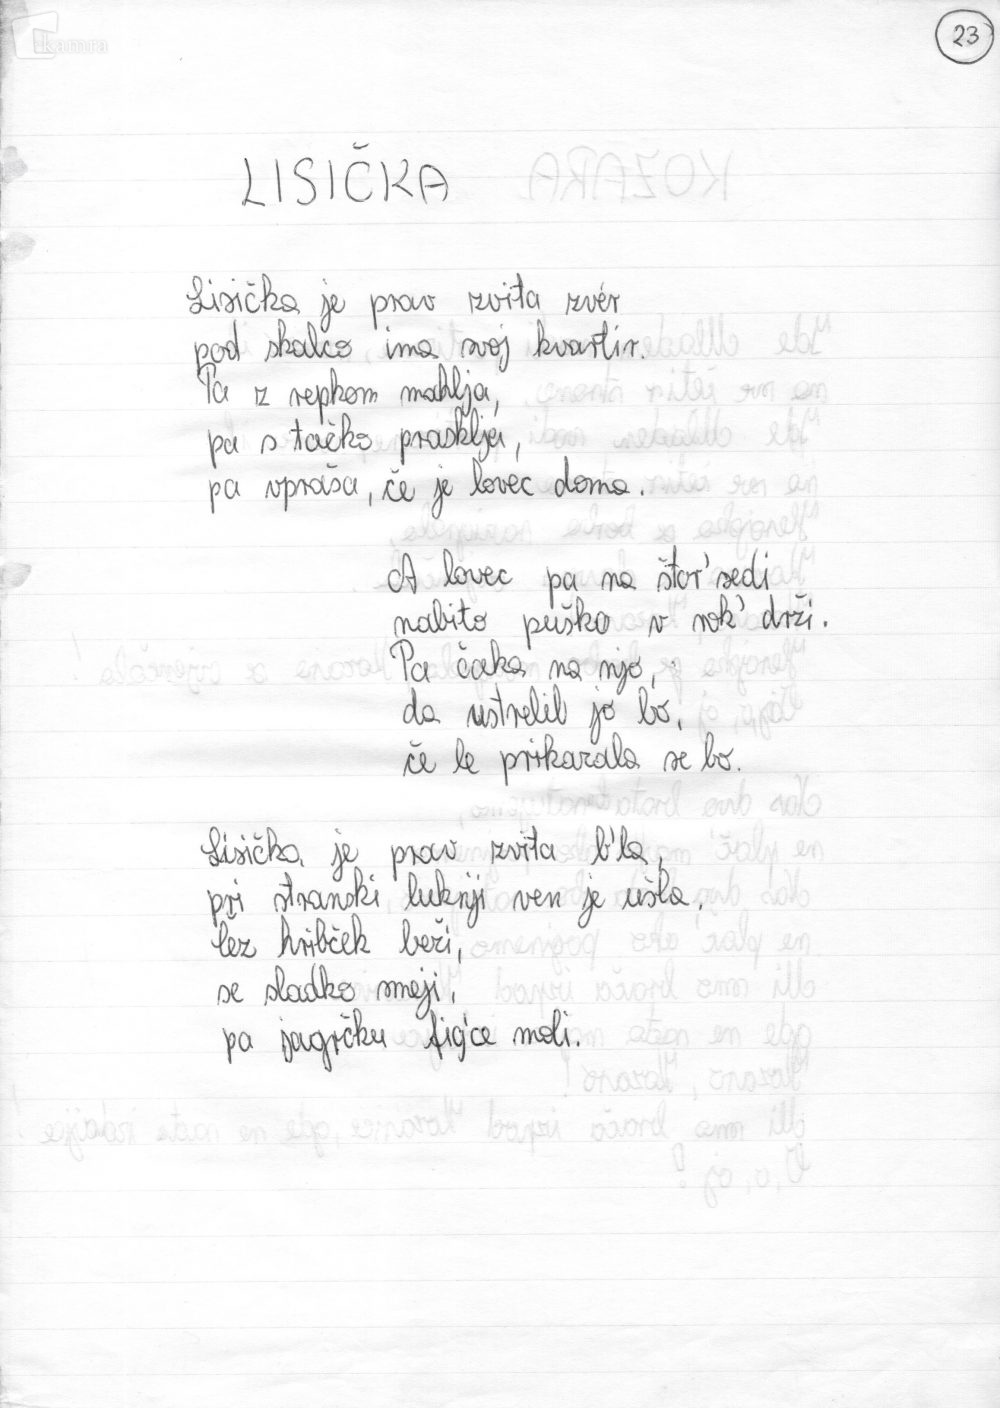 kamra
23
LISIČKA
Lisička je prav zvita zvér
pod skalco ima svoj kvartir.
Ta z repkom mahlja,
pa s tačko prasklja,
pa vpraša, če je lovec doma.
A lovec pa na štor' sedi
nabito puško v rok' drži.
Pa čaka na njo,
da ustrelil jo bo,
če le prikazala se bo.
Lisička je prav zvita b'la,
pri stranski luknji ven je ušla.
Čez hribček beži,
se sladko smeji,
pa jagrčku fig'ce moli.